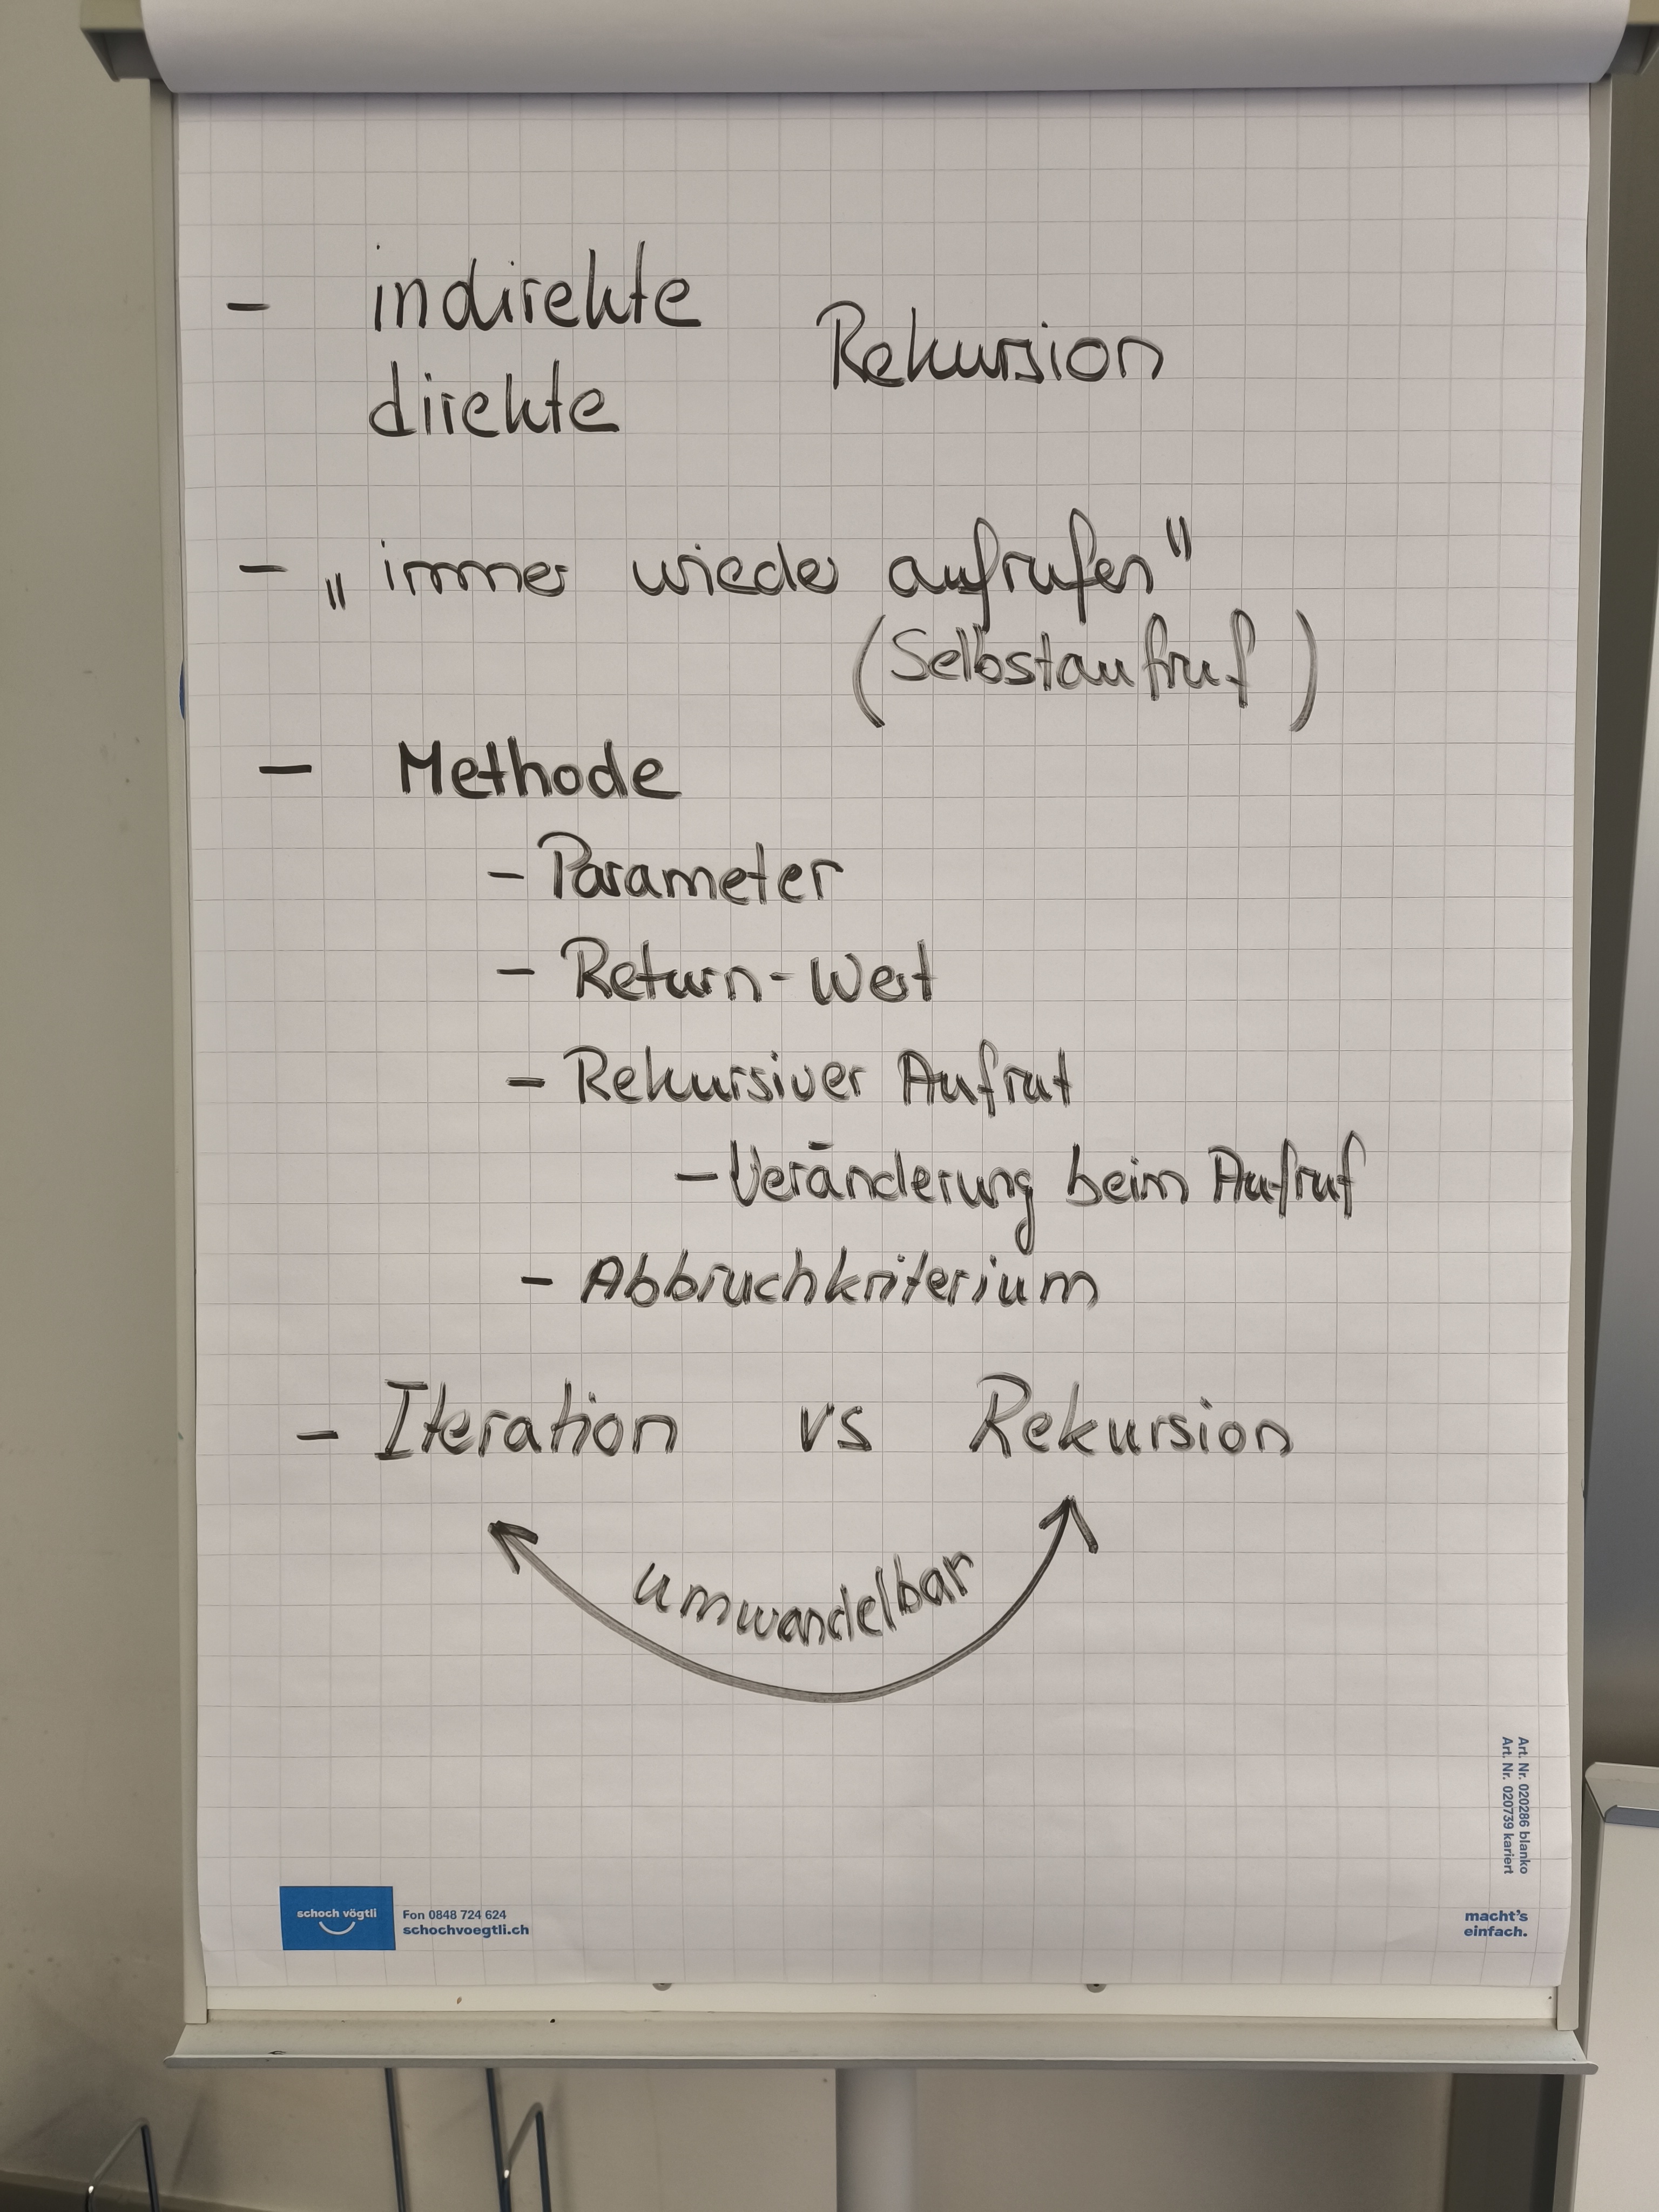 - indirekte
direkte
Rekursion
- „immer wieder aufrufen"
(Selbstaufruf)
- Methode
- Parameter
- Return-Wert
- Rekursiver Aufruf
- Veränderung beim Aufruf
- Abbruchkriterium
- Iteration vs Rekursion
umwandelbar
Art. Nr. 020286 blanko
Art. Nr. 020739 kariert
schoch vögtli
Fon 0848 724 624
schochvoegtli.ch
macht's
einfach.